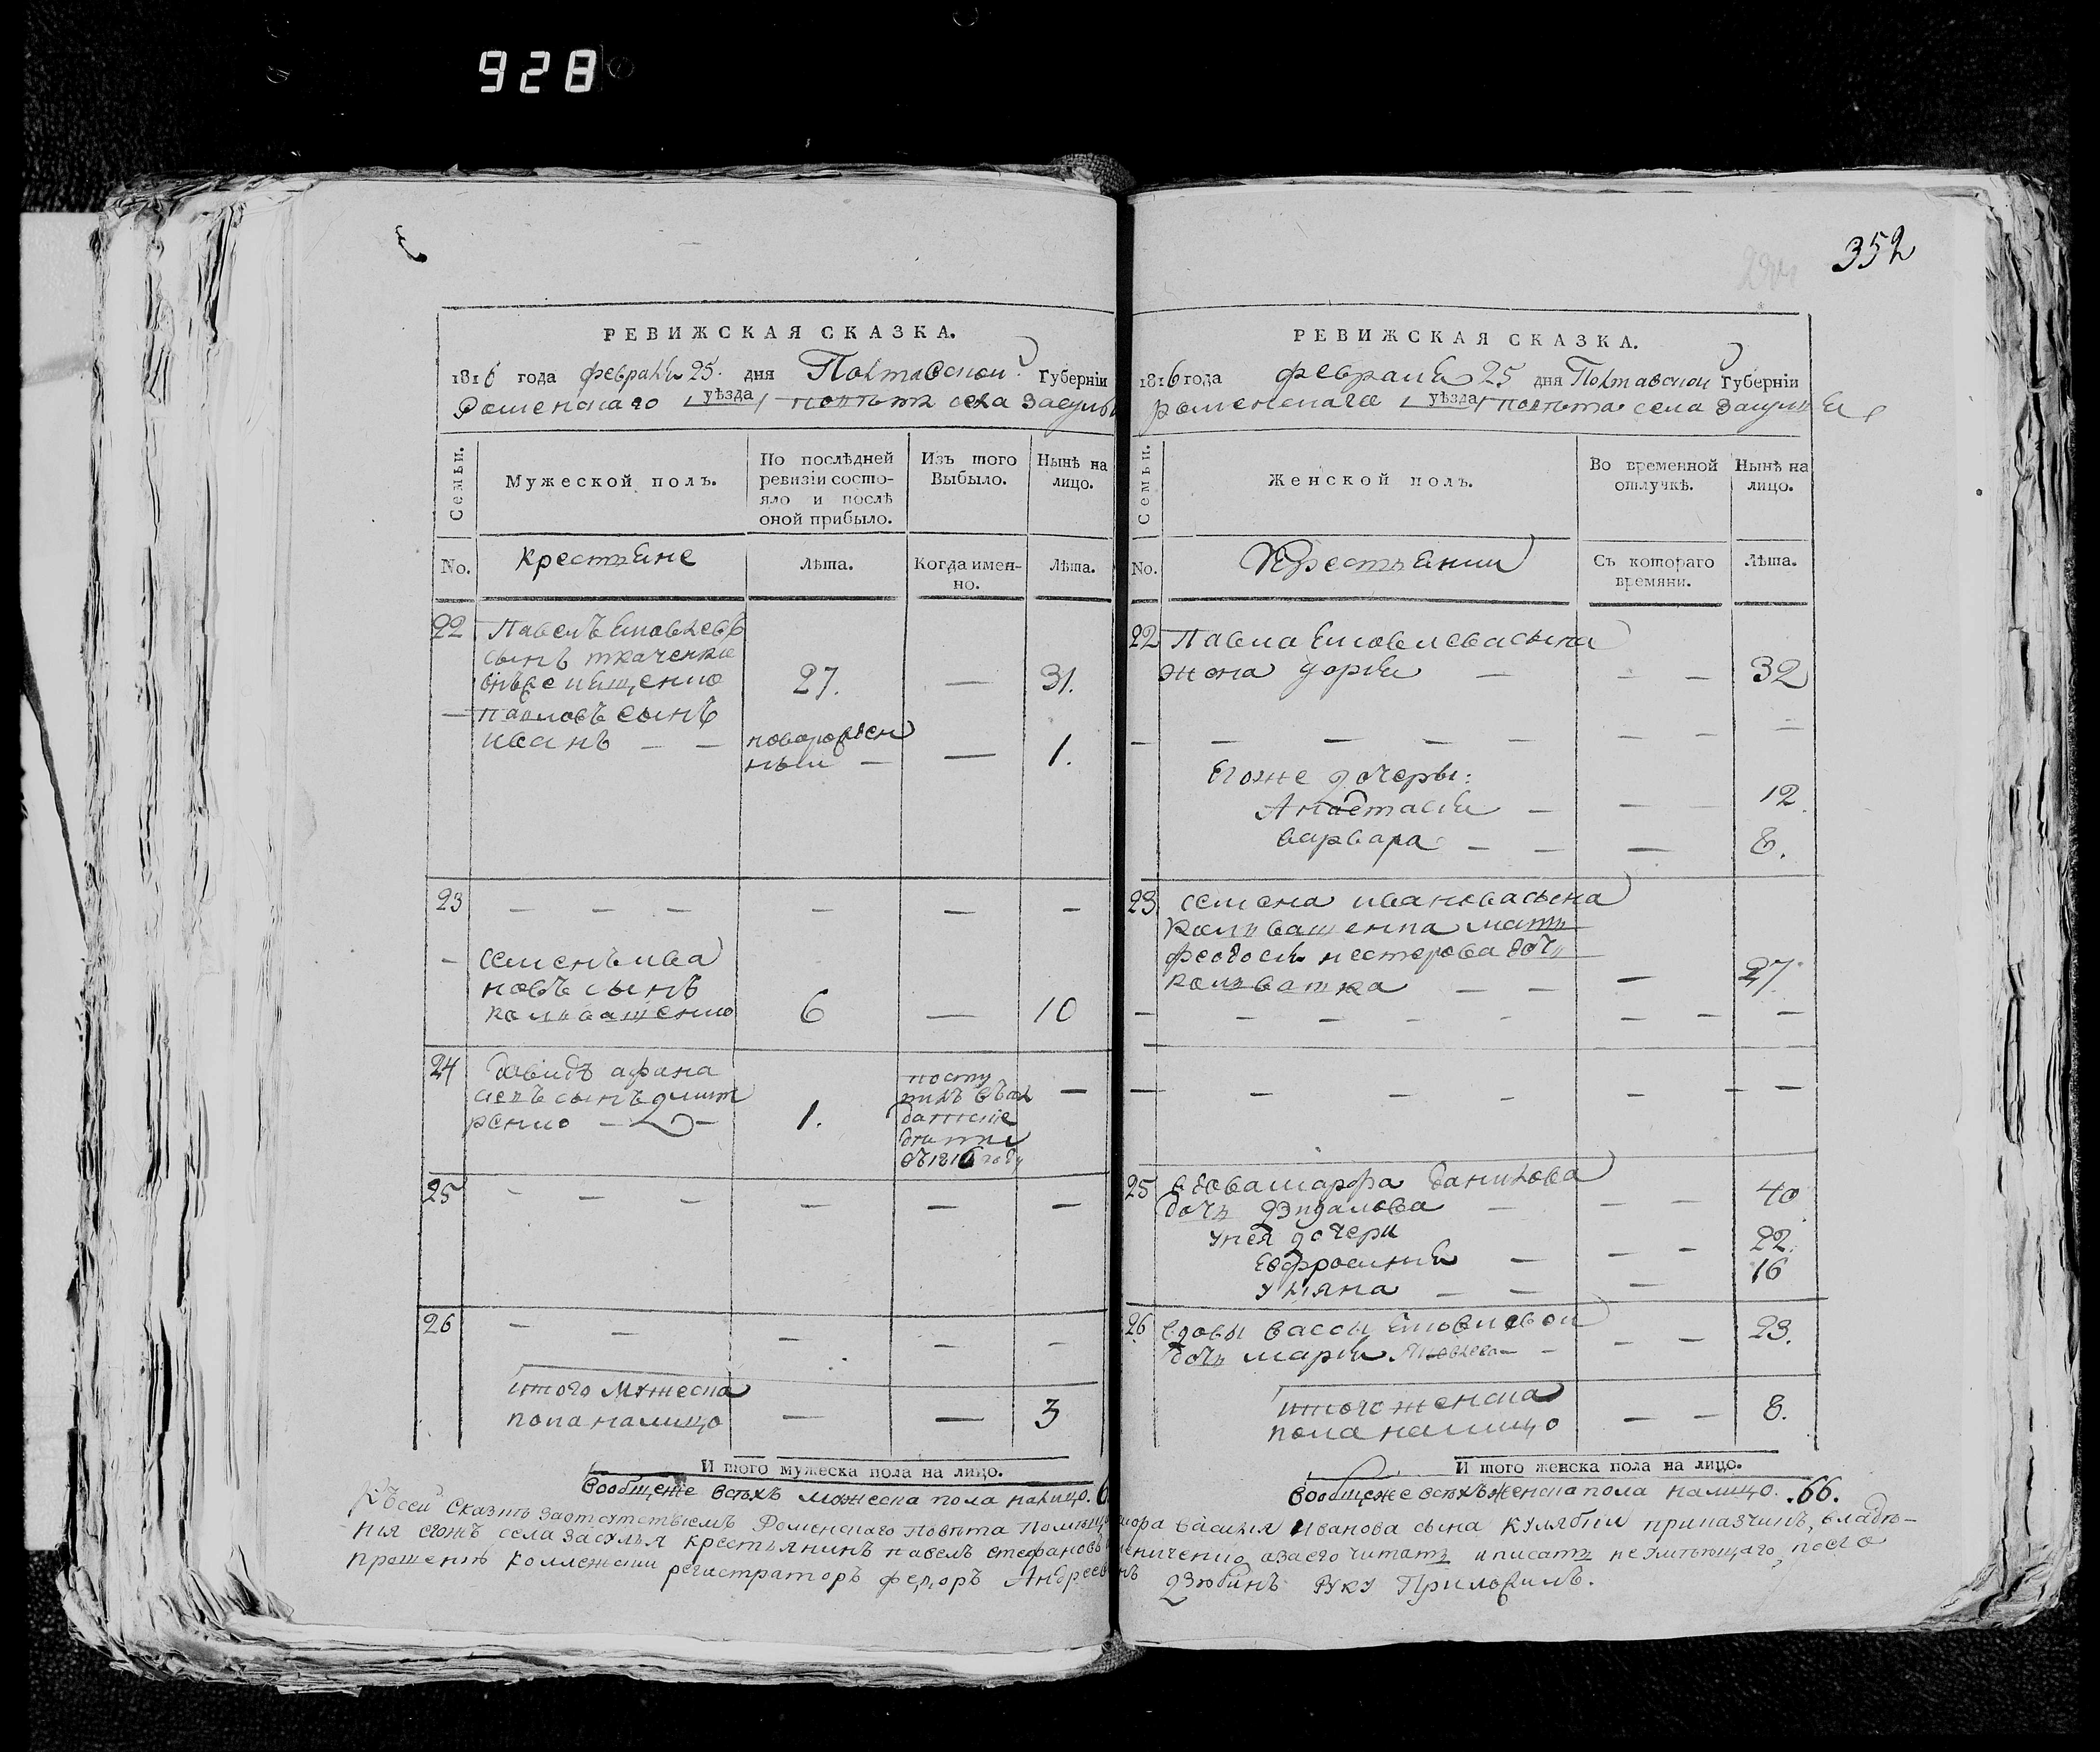 928
352
РЕВИЖСКАЯ СКАЗКА.
1816 года февраля 25. дня Полтавской Губерніи
Роменскаго уѣзда повѣта села Засулья
Семьи.
Мужеской полъ.
По послѣдней
ревизіи состо-
яло и послѣ
оной прибыло.
Изъ того
Выбыло.
Нынѣ на
лицо.
No.
крестьяне
Лѣта.
Когда имен-
но.
Лѣта.
22 Павелъ Яковлевъ
сынъ ткаченко
27. — 31.
— павловъ сынъ
иванъ — — новорожден
ный — — 1.
23 — — — — — —
— семенъ ива
новъ сынъ
коливашенко 6 — 10
24 давидъ афана
сіевъ сынъ дмит
ренко — — 1. —
посту
пилъ въ вла
дѣніе
въ 1816 году
25 — — — — — —
26 — — — — —
итого мужеска
пола налицо — — 3
И того мужеска пола на лицо.
Вообщеже всѣхъ мужеска пола налицо.
РЕВИЖСКАЯ СКАЗКА.
1816 года февраля 25 дня Полтавской Губерніи
роменскаго уѣзда повѣта села Засулья
Семьи.
Женской полъ.
Во временной
отлучкѣ.
Нынѣ на
лицо.
No.
Крестьянки
Съ котораго
времяни.
Лѣта.
22 Павла Яковлева сына
жена дарья — — — 32
— — — — — — — — —
Егоже дочери:
Анастасія — — — 12.
варвара — — — 8.
23 семена иванова сына
коливашенка мать
феодосья нестерова дочь
— — — 27
— — — — — — — —
— — — — — — —
25 вдова марфа данилова
дочь — — — 40
унея дочери 22.
Евфросинія — — —
уліяна — — — 16
26 вдовы вассы Яковлевой
дочь марія Яковлева — — — — 23.
итого женска
пола налицо — — 8.
И того женска пола на лицо.
Вообщеже всѣхъ женска пола налицо. .66.
Къ сей сказкѣ заотсутствіемъ Роменскаго Повѣта Помѣщика маіора Василія Иванова сына Кулябки приказчикъ, владѣ-
нія егожъ села засулья крестьянинъ павелъ стефановъ азаего читать иписать неумѣющаго, поего
прошенію коллежскій регистраторъ федоръ Андреевъ сынъ Дзюбинъ Руку Приложилъ.